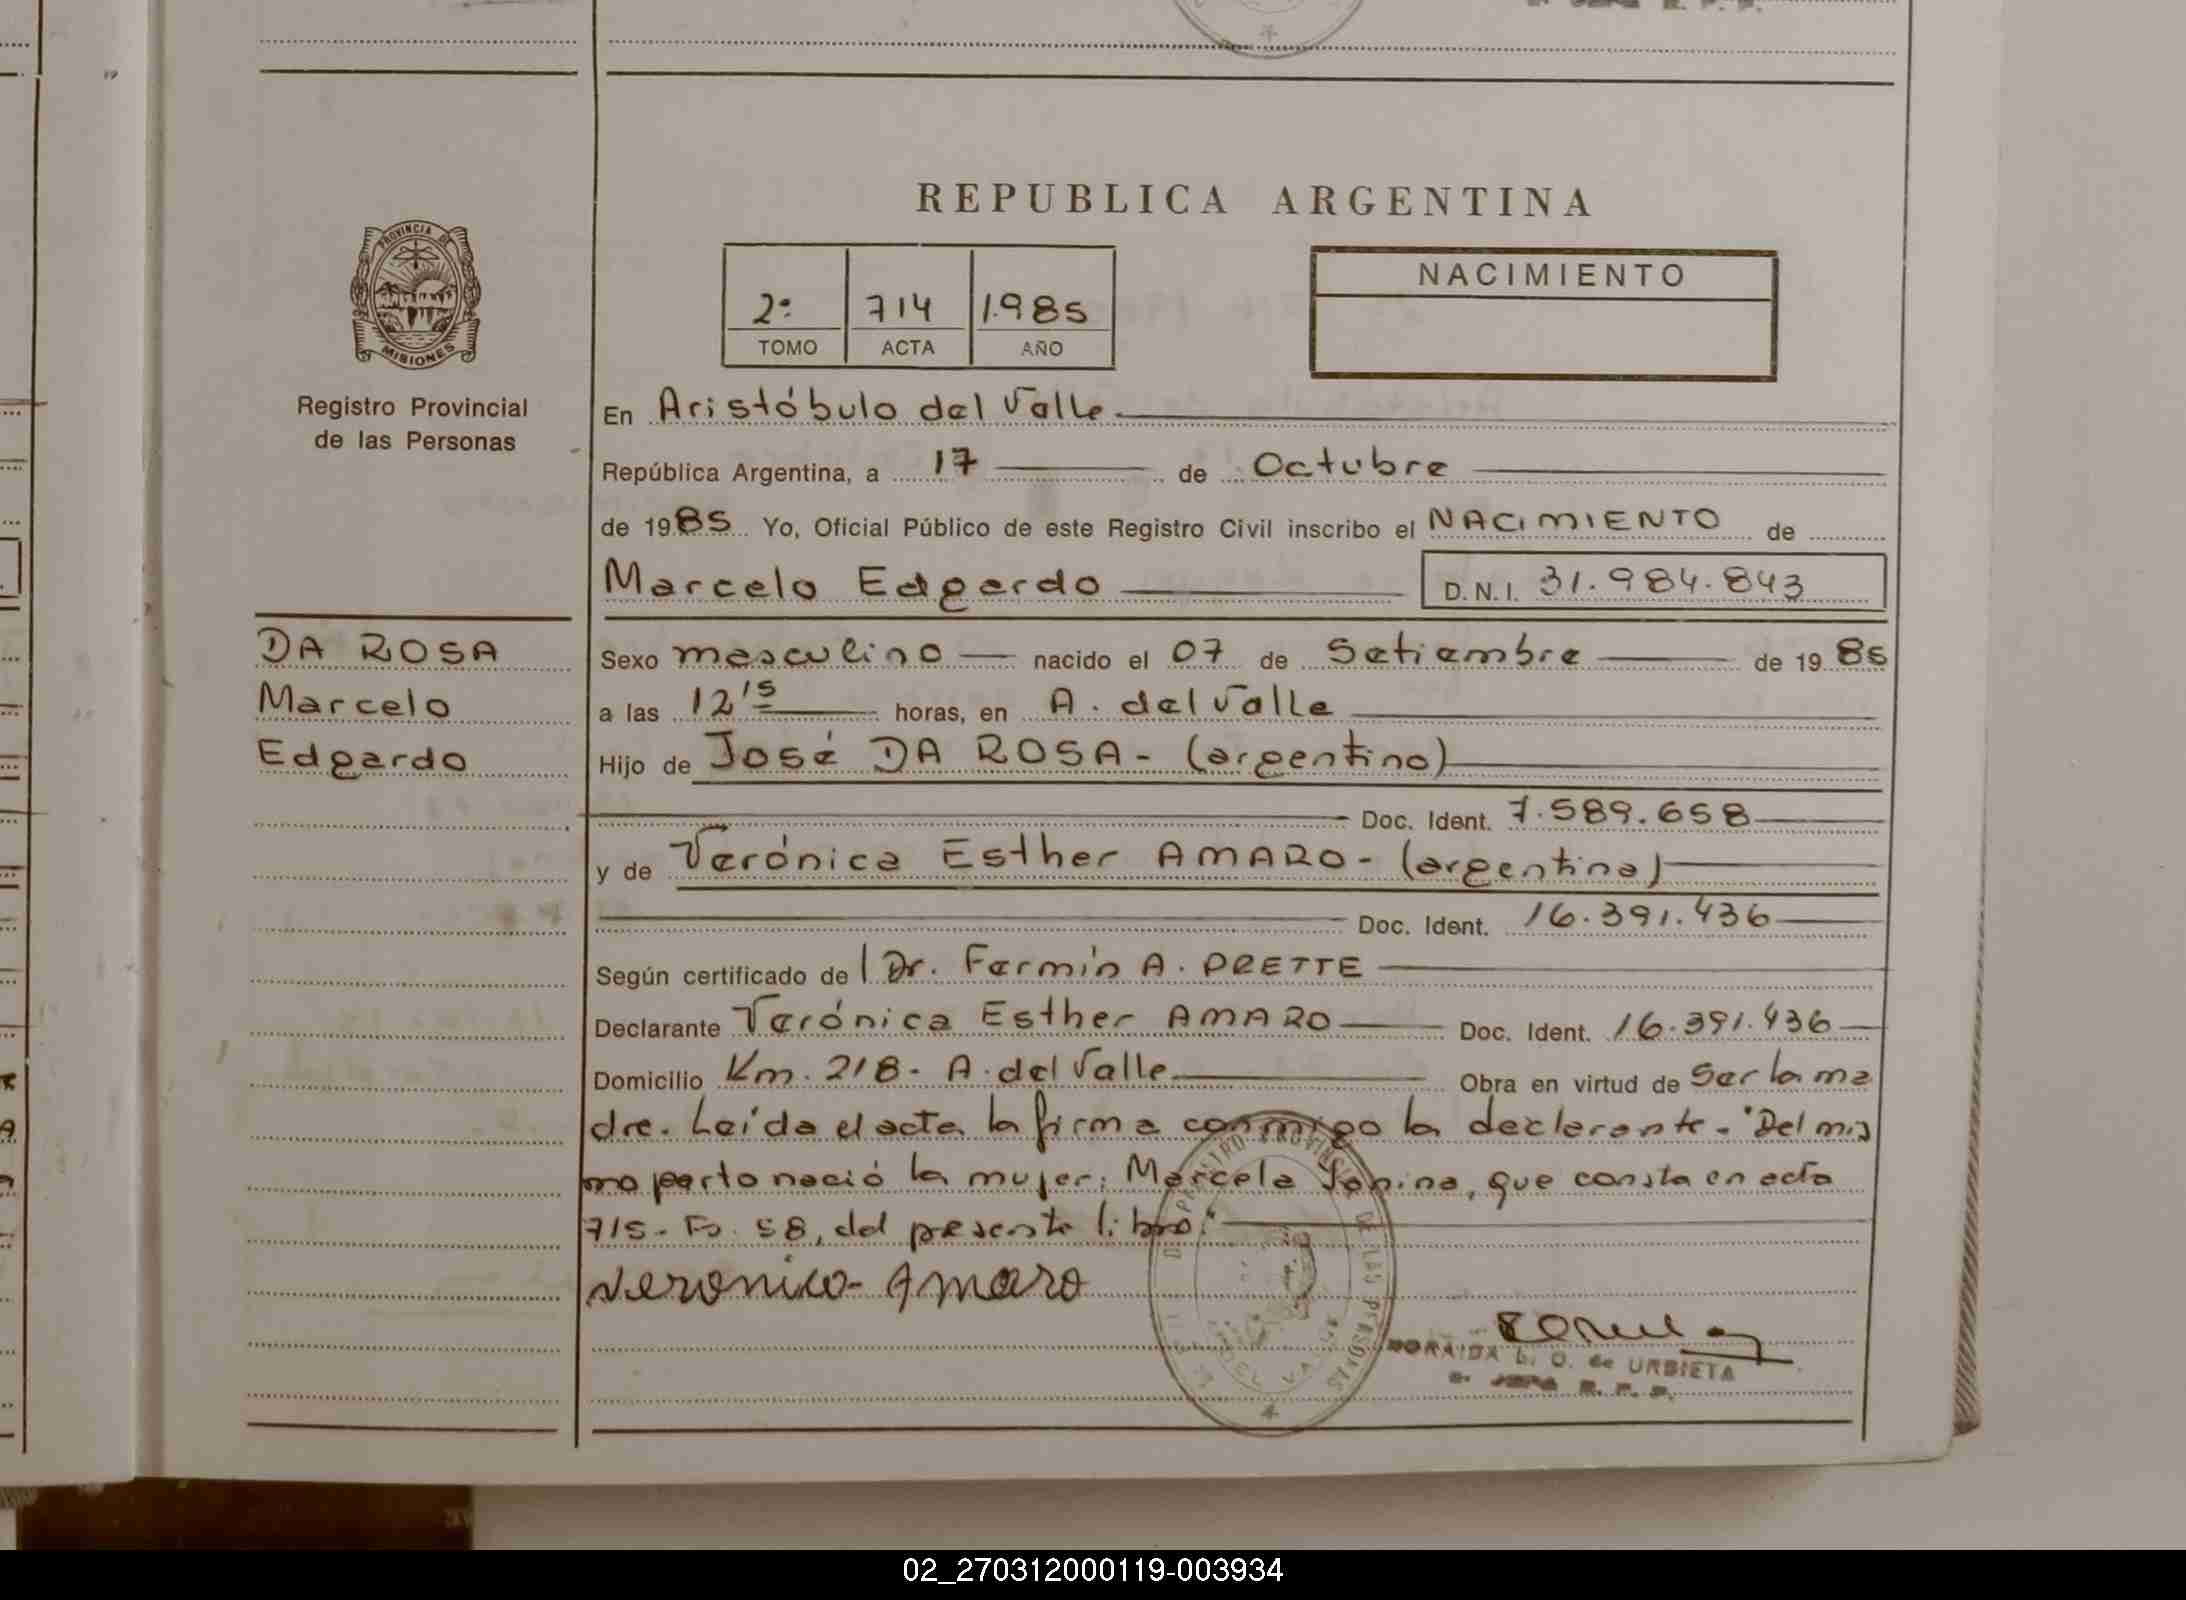 REPUBLICA ARGENTINA
PROVINCIA DE
MISIONES
Registro Provincial
de las Personas
2º 714 1.985
TOMO ACTA AÑO
NACIMIENTO
En Aristóbulo del Valle
República Argentina, a 17 de Octubre
de 1985 Yo, Oficial Público de este Registro Civil inscribo el NACIMIENTO de
Marcelo Edgardo D.N.I. 31.984.843
DA ROSA
Marcelo
Edgardo
Sexo masculino nacido el 07 de Setiembre de 1985
a las 12'15 horas, en A. del Valle
Hijo de José DA ROSA - (argentino)
Doc. Ident. 7.589.658
y de Verónica Esther AMARO - (argentina)
Doc. Ident. 16.391.436
Según certificado de l Dr. Fermín A. PRETTE
Declarante Verónica Esther AMARO Doc. Ident. 16.391.436
Domicilio Km. 218 - A. del Valle Obra en virtud de Ser la ma
dre. Leída el acta la firma conmigo la declarante. "Del mis
mo parto nació la mujer: Marcela Janina, que consta en acta
715 - Fo. 58, del presente libro."
Veronica Amaro
DORAIDA L. O. de URBIETA
02_270312000119-003934